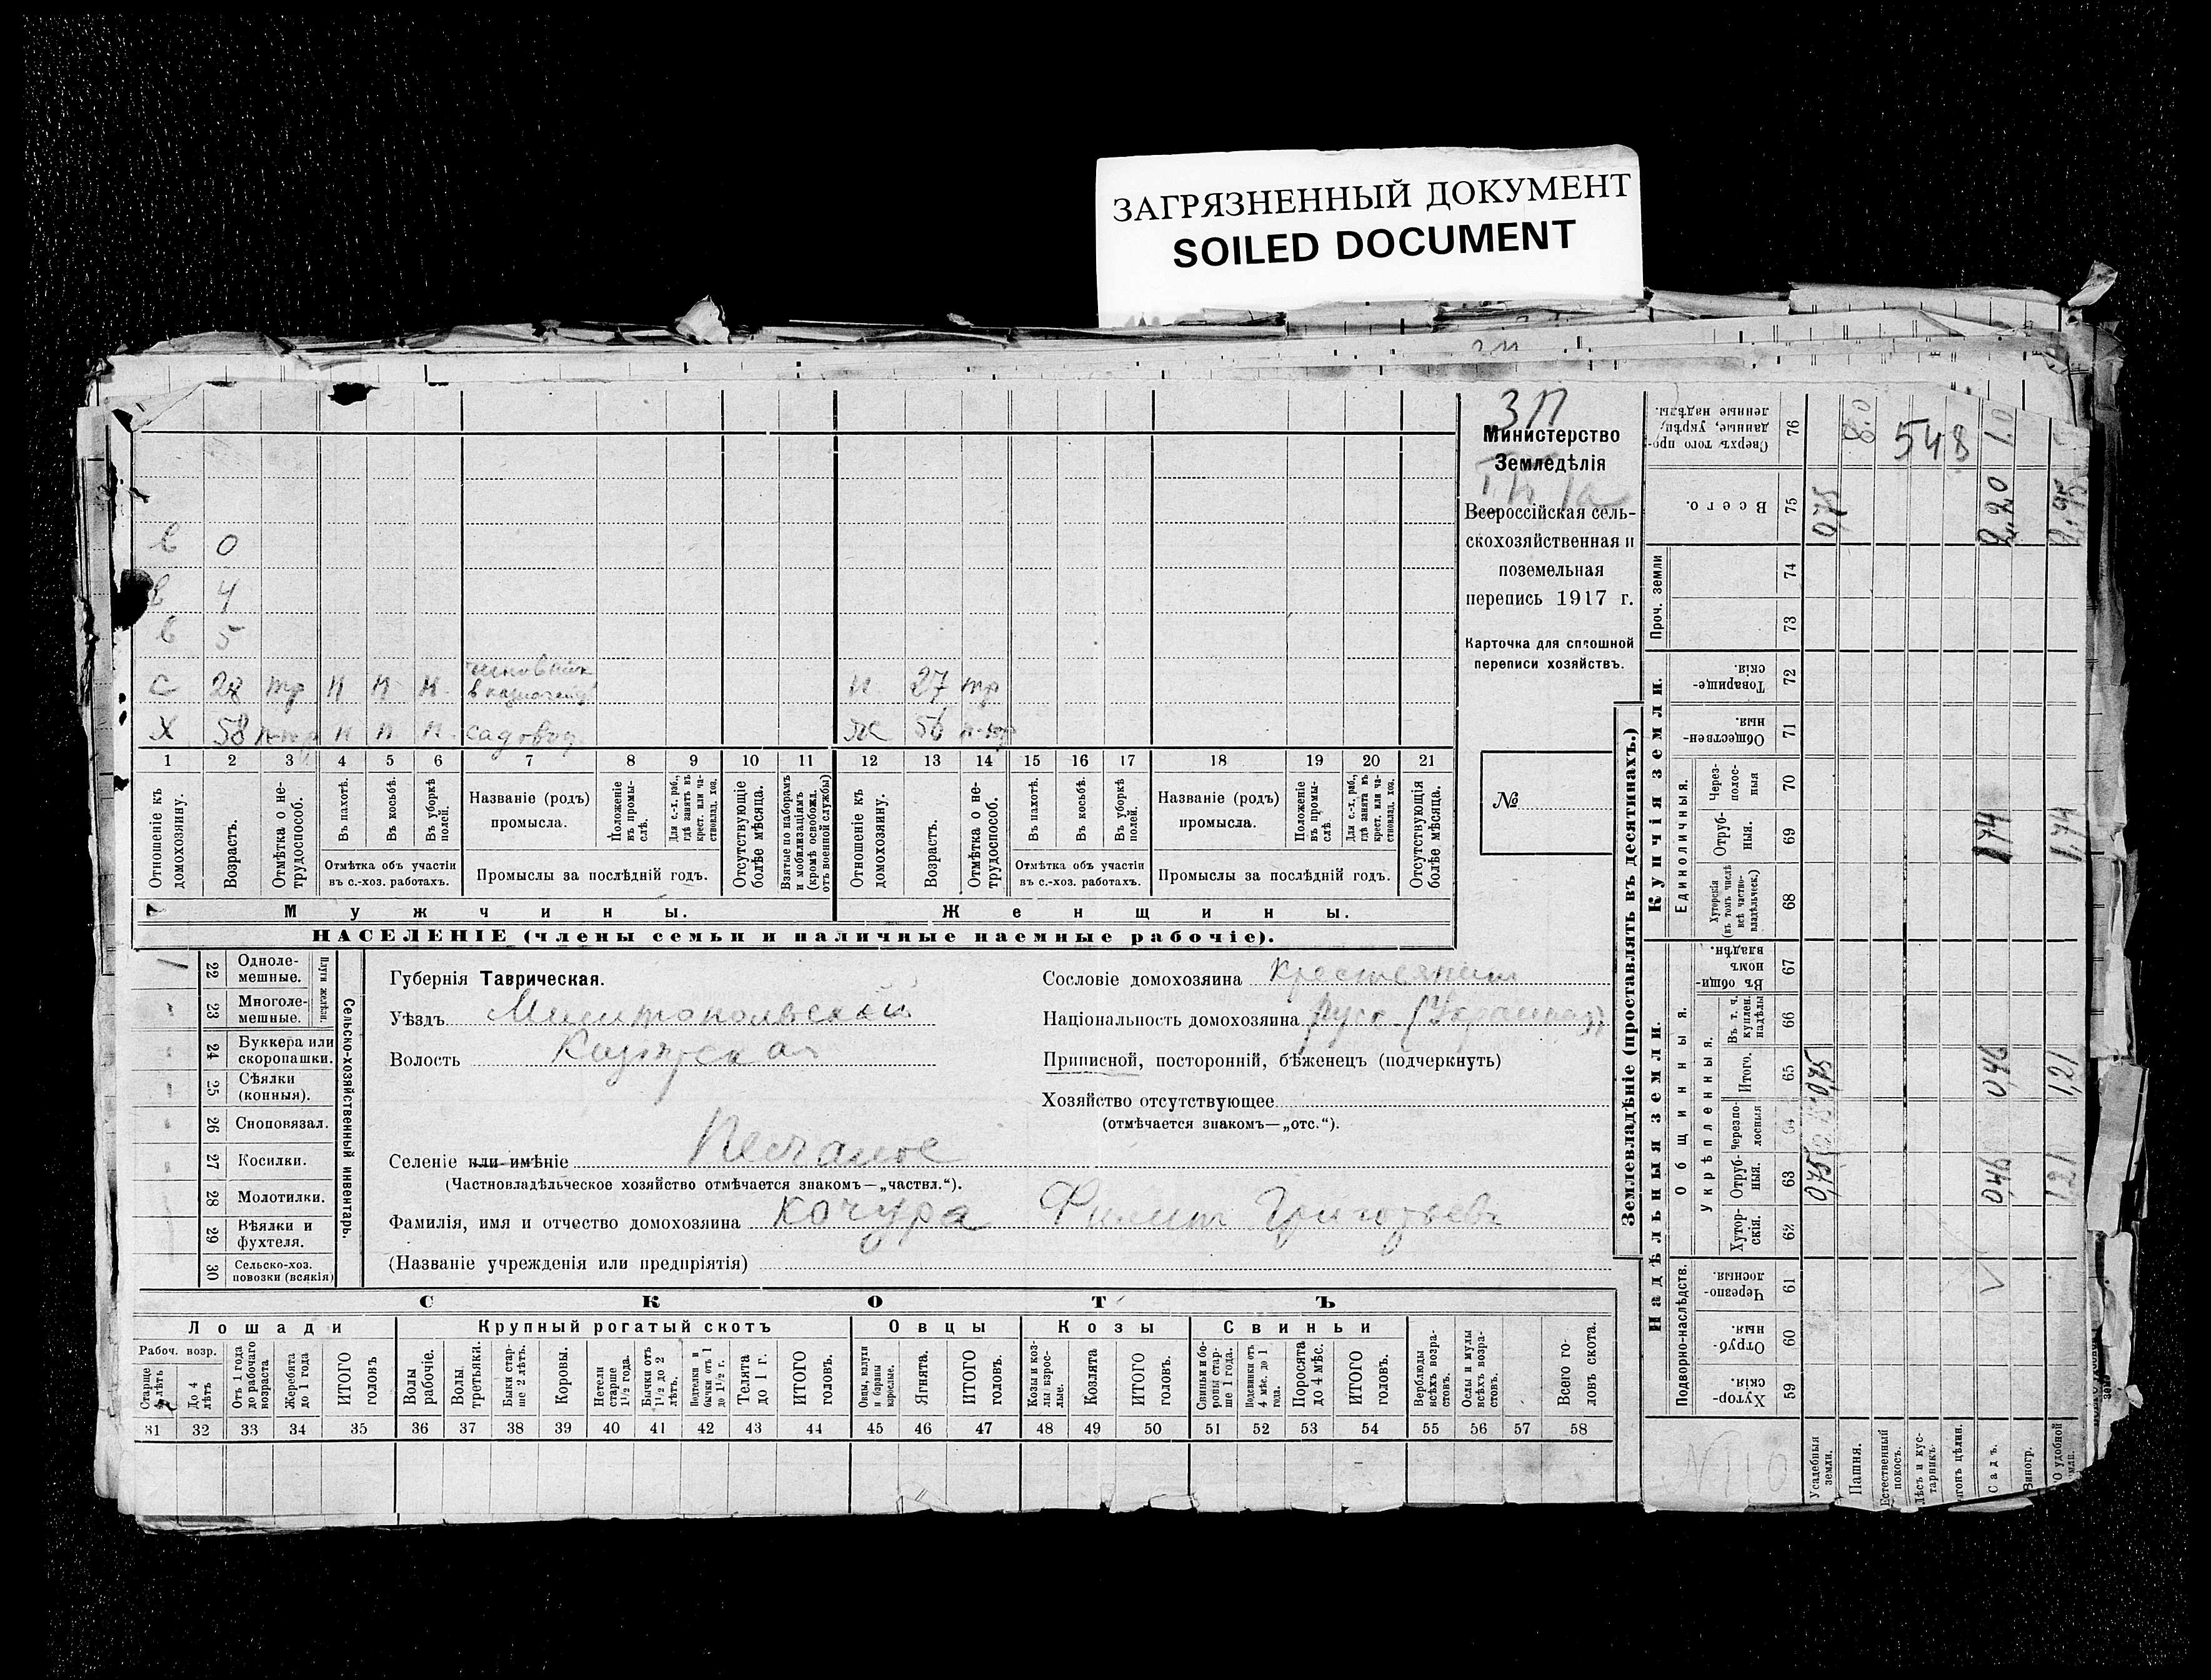 ЗАГРЯЗНЕННЫЙ ДОКУМЕНТ
SOILED DOCUMENT
3П
Министерство
Земледѣлія
Всероссійская сель-
скохозяйственная и
поземельная
перепись 1917 г.
Карточка для сплошной
переписи хозяйствъ.
№
в 0
в 4
в 5
С 28 тр н н н. чиновник
н. 27 тр
Х 58 п-тр н н н. садовод
ж 56 п-тр
1 2 3 4 5 6 7 8 9 10 11 12 13 14 15 16 17 18 19 20 21
Отношеніе къ домохозяину.
Возрастъ.
Отмѣтка о не-трудоспособ.
Въ пахотѣ.
Въ косьбѣ.
Въ уборкѣ полей.
Отмѣтка объ участіи
въ с.-хоз. работахъ.
Названіе (родъ)
промысла.
Положеніе въ промы-слѣ.
Для с.-х. раб., гдѣ занятъ въ крест. или ча-стновлад. хоз.
Промыслы за послѣдній годъ.
Отсутствующіе болѣе мѣсяца.
Взятые по наборамъ и мобилизаціямъ (кромѣ освобожд. отъ военной службы)
Отношеніе къ домохозяину.
Возрастъ.
Отмѣтка о не-трудоспособ.
Въ пахотѣ.
Въ косьбѣ.
Въ уборкѣ полей.
Отмѣтка объ участіи
въ с.-хоз. работахъ.
Названіе (родъ)
промысла.
Положеніе въ промы-слѣ
Для с.-х. раб., гдѣ занята въ крест. или ча-стновлад. хоз.
Промыслы за послѣдній годъ.
Отсутствующія болѣе мѣсяца.
7 Мужчины.
Женщины.
НАСЕЛЕНІЕ (члены семьи и наличные наемные рабочіе).
22 Одноле-мешные.
23 Многоле-мешные.
Плуги желѣзн.
24 Буккера или скоропашки.
25 Сѣялки (конныя).
26 Сноповязал.
27 Косилки.
28 Молотилки.
29 Вѣялки и фухтеля.
30 Сельско-хоз. повозки (всякія)
Сельско-хозяйственный инвентарь.
Губернія Таврическая.
Уѣздъ Мелитопольскій
Волость
Сословіе домохозяина крестьянин
Національность домохозяина Русс (Украинец)
Приписной, посторонній, бѣженецъ (подчеркнуть)
Хозяйство отсутствующее
(отмѣчается знакомъ—„отс.“).
Селеніе или имѣніе Песчаное
(Частновладѣльческое хозяйство отмѣчается знакомъ—„частвл.“).
Фамилія, имя и отчество домохозяина Кочура Филипп Григорьевъ
(Названіе учрежденія или предпріятія)
СКОТЪ
Лошади
Крупный рогатый скотъ
Овцы
Козы
Свиньи
Рабоч. возр.
Старше 4 лѣтъ
До 4 лѣтъ
Отъ 1 года до рабочаго возраста
Жеребята до 1 года
ИТОГО головъ
Волы рабочіе.
Волы третьяки.
Быки стар-ше 2 лѣтъ.
Коровы.
Нетели старше 1½ года.
Бычки отъ 1½ до 2 лѣтъ.
Подтелки и бычки отъ 1 до 1½ г.
Телята до 1 г.
ИТОГО головъ.
Овцы, валухи и бараны взрослые.
Ягнята.
ИТОГО головъ.
Козы и коз-лы взрос-лые.
Козлята
ИТОГО головъ.
Свиньи и бо-ровы стар-ше 1 года.
Подсвинки отъ 4 мѣс. до 1 года.
Поросята до 4 мѣс.
ИТОГО головъ.
Верблюды всѣхъ возра-стовъ.
Ослы и мулы всѣхъ возра-стовъ.
Всего го-ловъ скота.
31 32 33 34 35 36 37 38 39 40 41 42 43 44 45 46 47 48 49 50 51 52 53 54 55 56 57 58
Землевладѣніе (проставлять въ десятинахъ.)
Надѣльныя земли.
Купчія земли.
Проч. земли
Подворно-наслѣдств.
Общинныя.
Укрѣпленныя.
Единоличныя.
59 Хутор-скія
60 Отруб-ныя.
61 Черезпо-лосныя.
62 Хутор-скія.
63 Отруб-ныя.
64 Черезпо-лосныя
65 Итого.
66 Въ т. ч. куплен. надѣлы
67 Въ общин-номъ владѣн.
68 Хуторскія (въ томъ числѣ всѣ частно-владѣльческ.)
69 Отруб-ныя.
70 Через-полос-ныя
71 Обществен-ныя.
72 Товарище-скія.
73
74
75 Всего.
76 Сверхъ того про-данные, укрѣп-ленные надѣлы.
Усадебныя земли. 0,75 0,75 0,75
Пашня. 8.0
Естественный покосъ.
Лѣсъ и кус-тарникъ.
548
Садъ. 0,46 0,46 1,74 2,20 1.0
Виногр.
О удобной 1,21 1,21 1,74 2,95
N 110